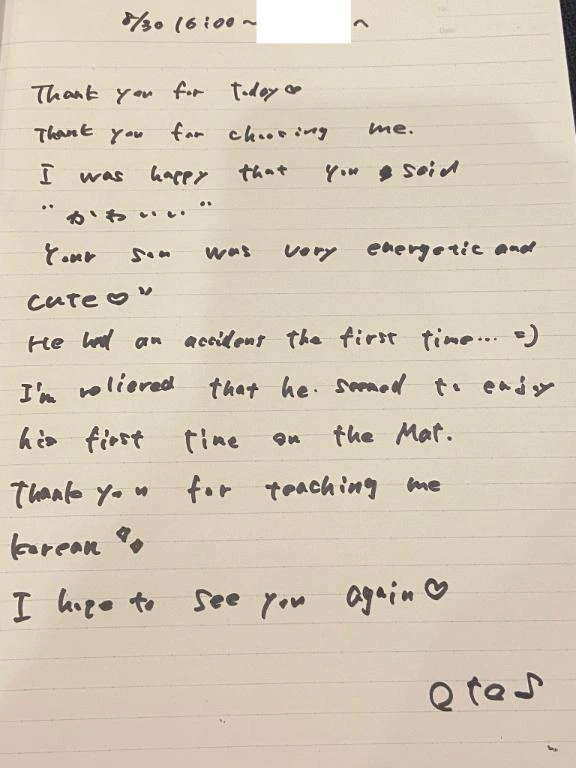 8/30 16:00~ へ
Thank you for today♡
Thank you for choosing me.
I was happy that you said
"かわいい"
Your son was very energetic and
cute♡"
He had an accident the first time... =)
I'm relieved that he seemed to enjoy
his first time on the Mat.
Thank you for teaching me
korean
I hope to see you again♡